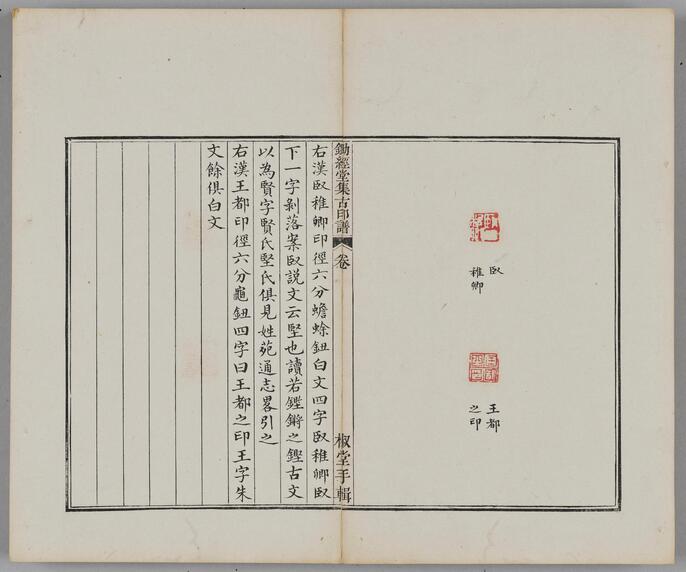 臤
稚卿
王都
之印
鋤經堂集古印譜 卷 椒堂手輯
右漢臤稚卿印徑六分蟾蜍鈕白文四字臤稚卿臤
下一字剝落案臤說文云堅也讀若鏗鏘之鏗古文
以為賢字賢氏堅氏俱見姓苑通志畧引之
右漢王都印徑六分龜鈕四字曰王都之印王字朱
文餘俱白文